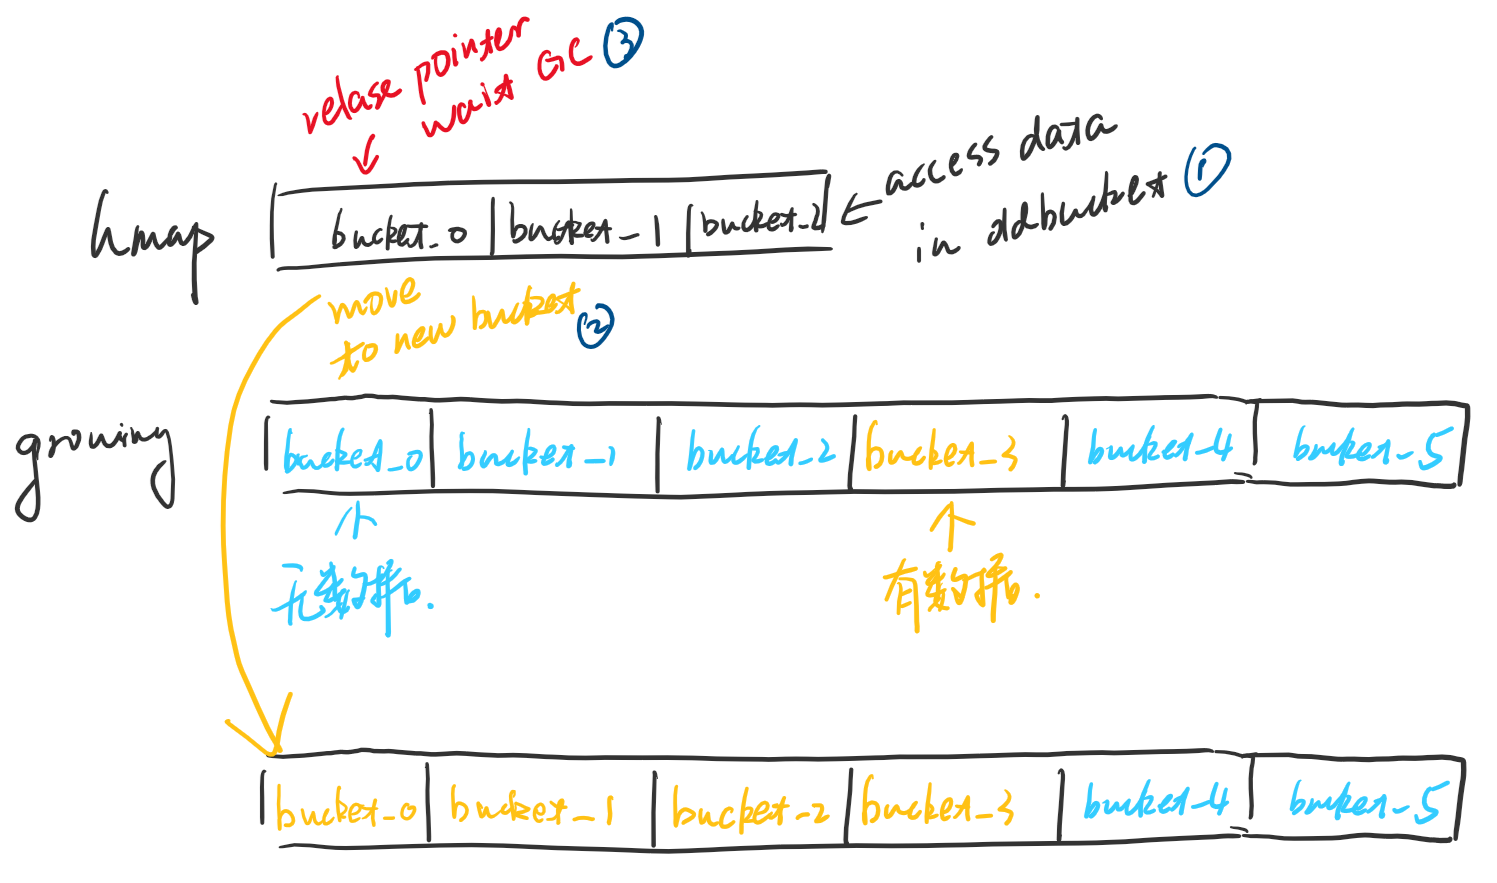 relase pointer
waist GC ③
access data
in oldbucket ①
hmap
bucket_0 bucket_1 bucket_2
move
to new bucket ②
growing
bucket_0 bucket_1 bucket_2 bucket_3 bucket_4 bucket_5
无数据. 有数据.
bucket_0 bucket_1 bucket_2 bucket_3 bucket_4 bucket_5